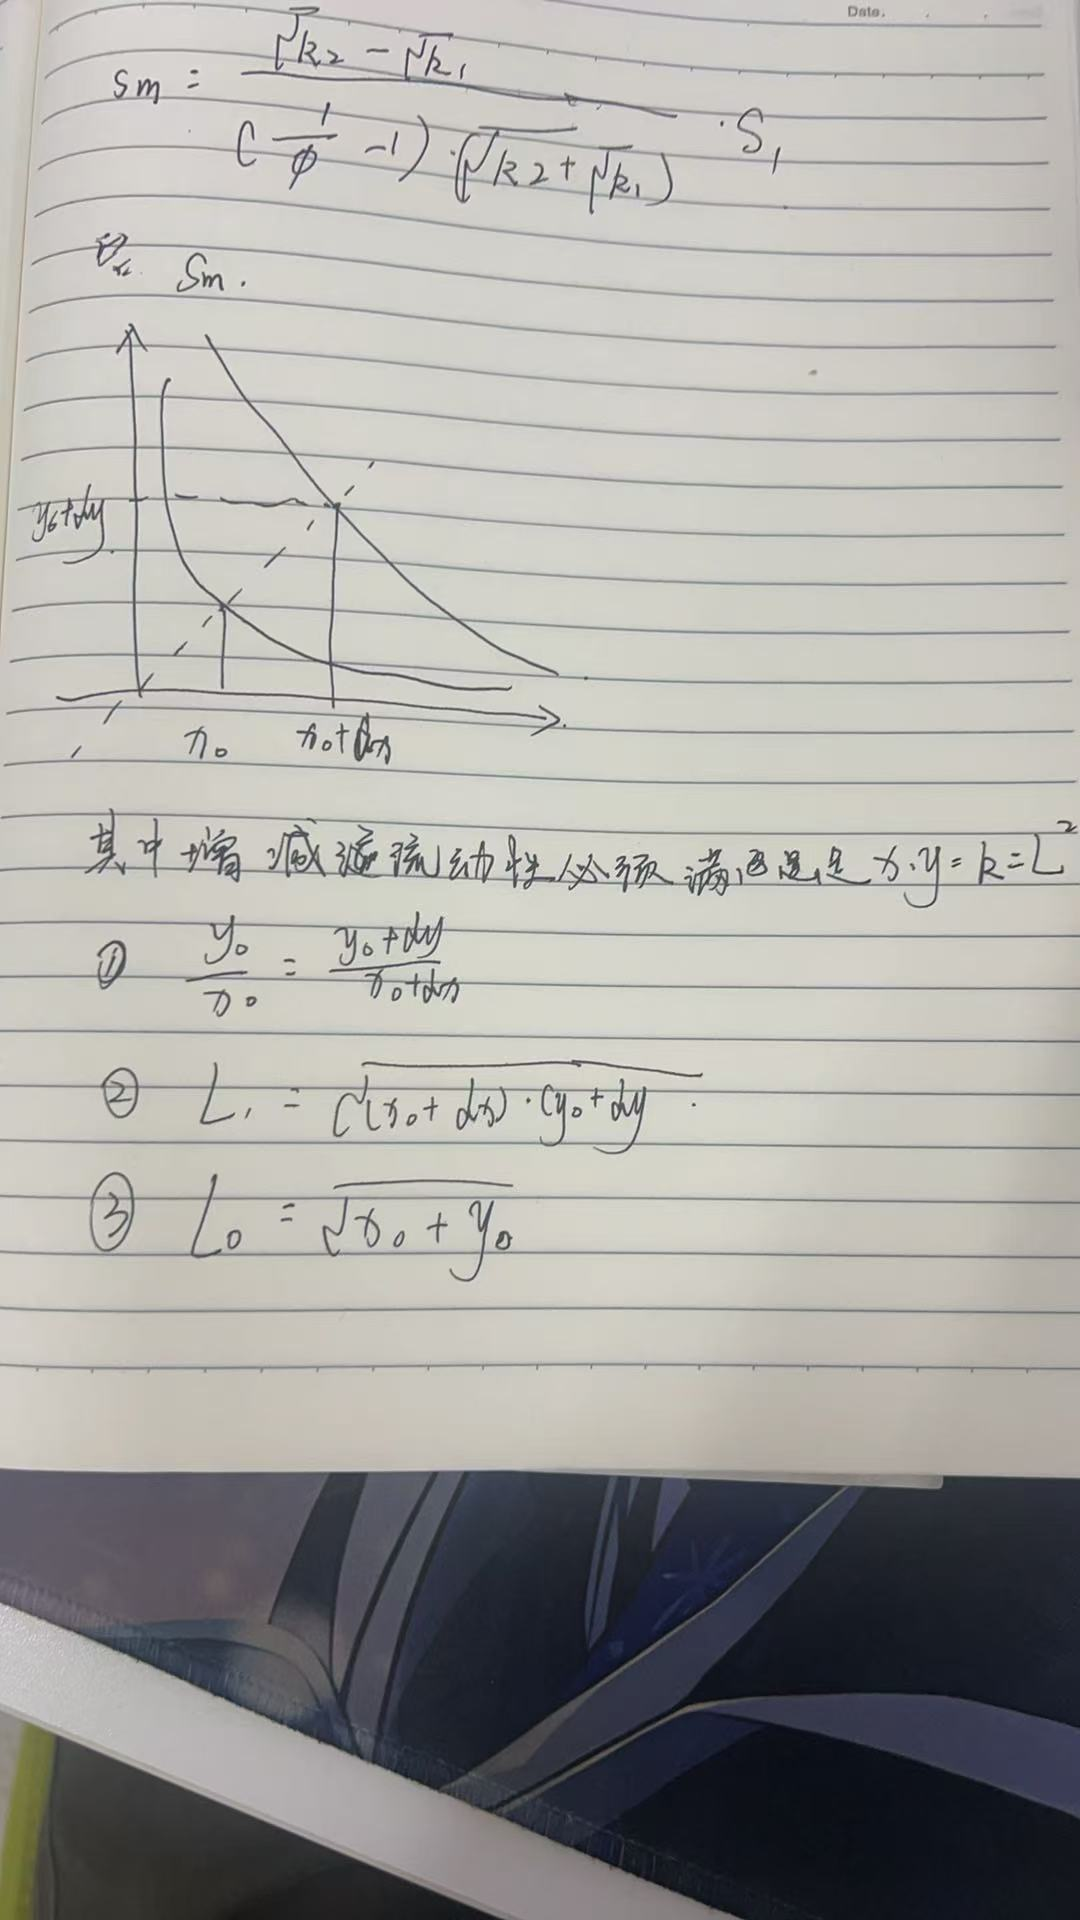 Date.
Sm = (√k2 - √k1) / ((1/φ - 1) · (√k2 + √k1)) · S1
Sm.
y0+dy
x0 x0+dx
其中增减流动性必须满足 x·y = k = L²
① y0/x0 = (y0+dy)/(x0+dx)
② L1 = √(x0+dx)·(y0+dy
③ L0 = √x0+y0